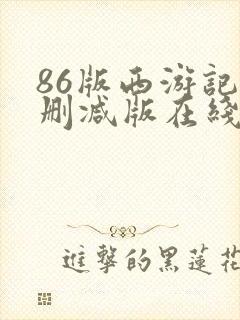 86版西游記
刪减版在綫
進擊的黑蓮花